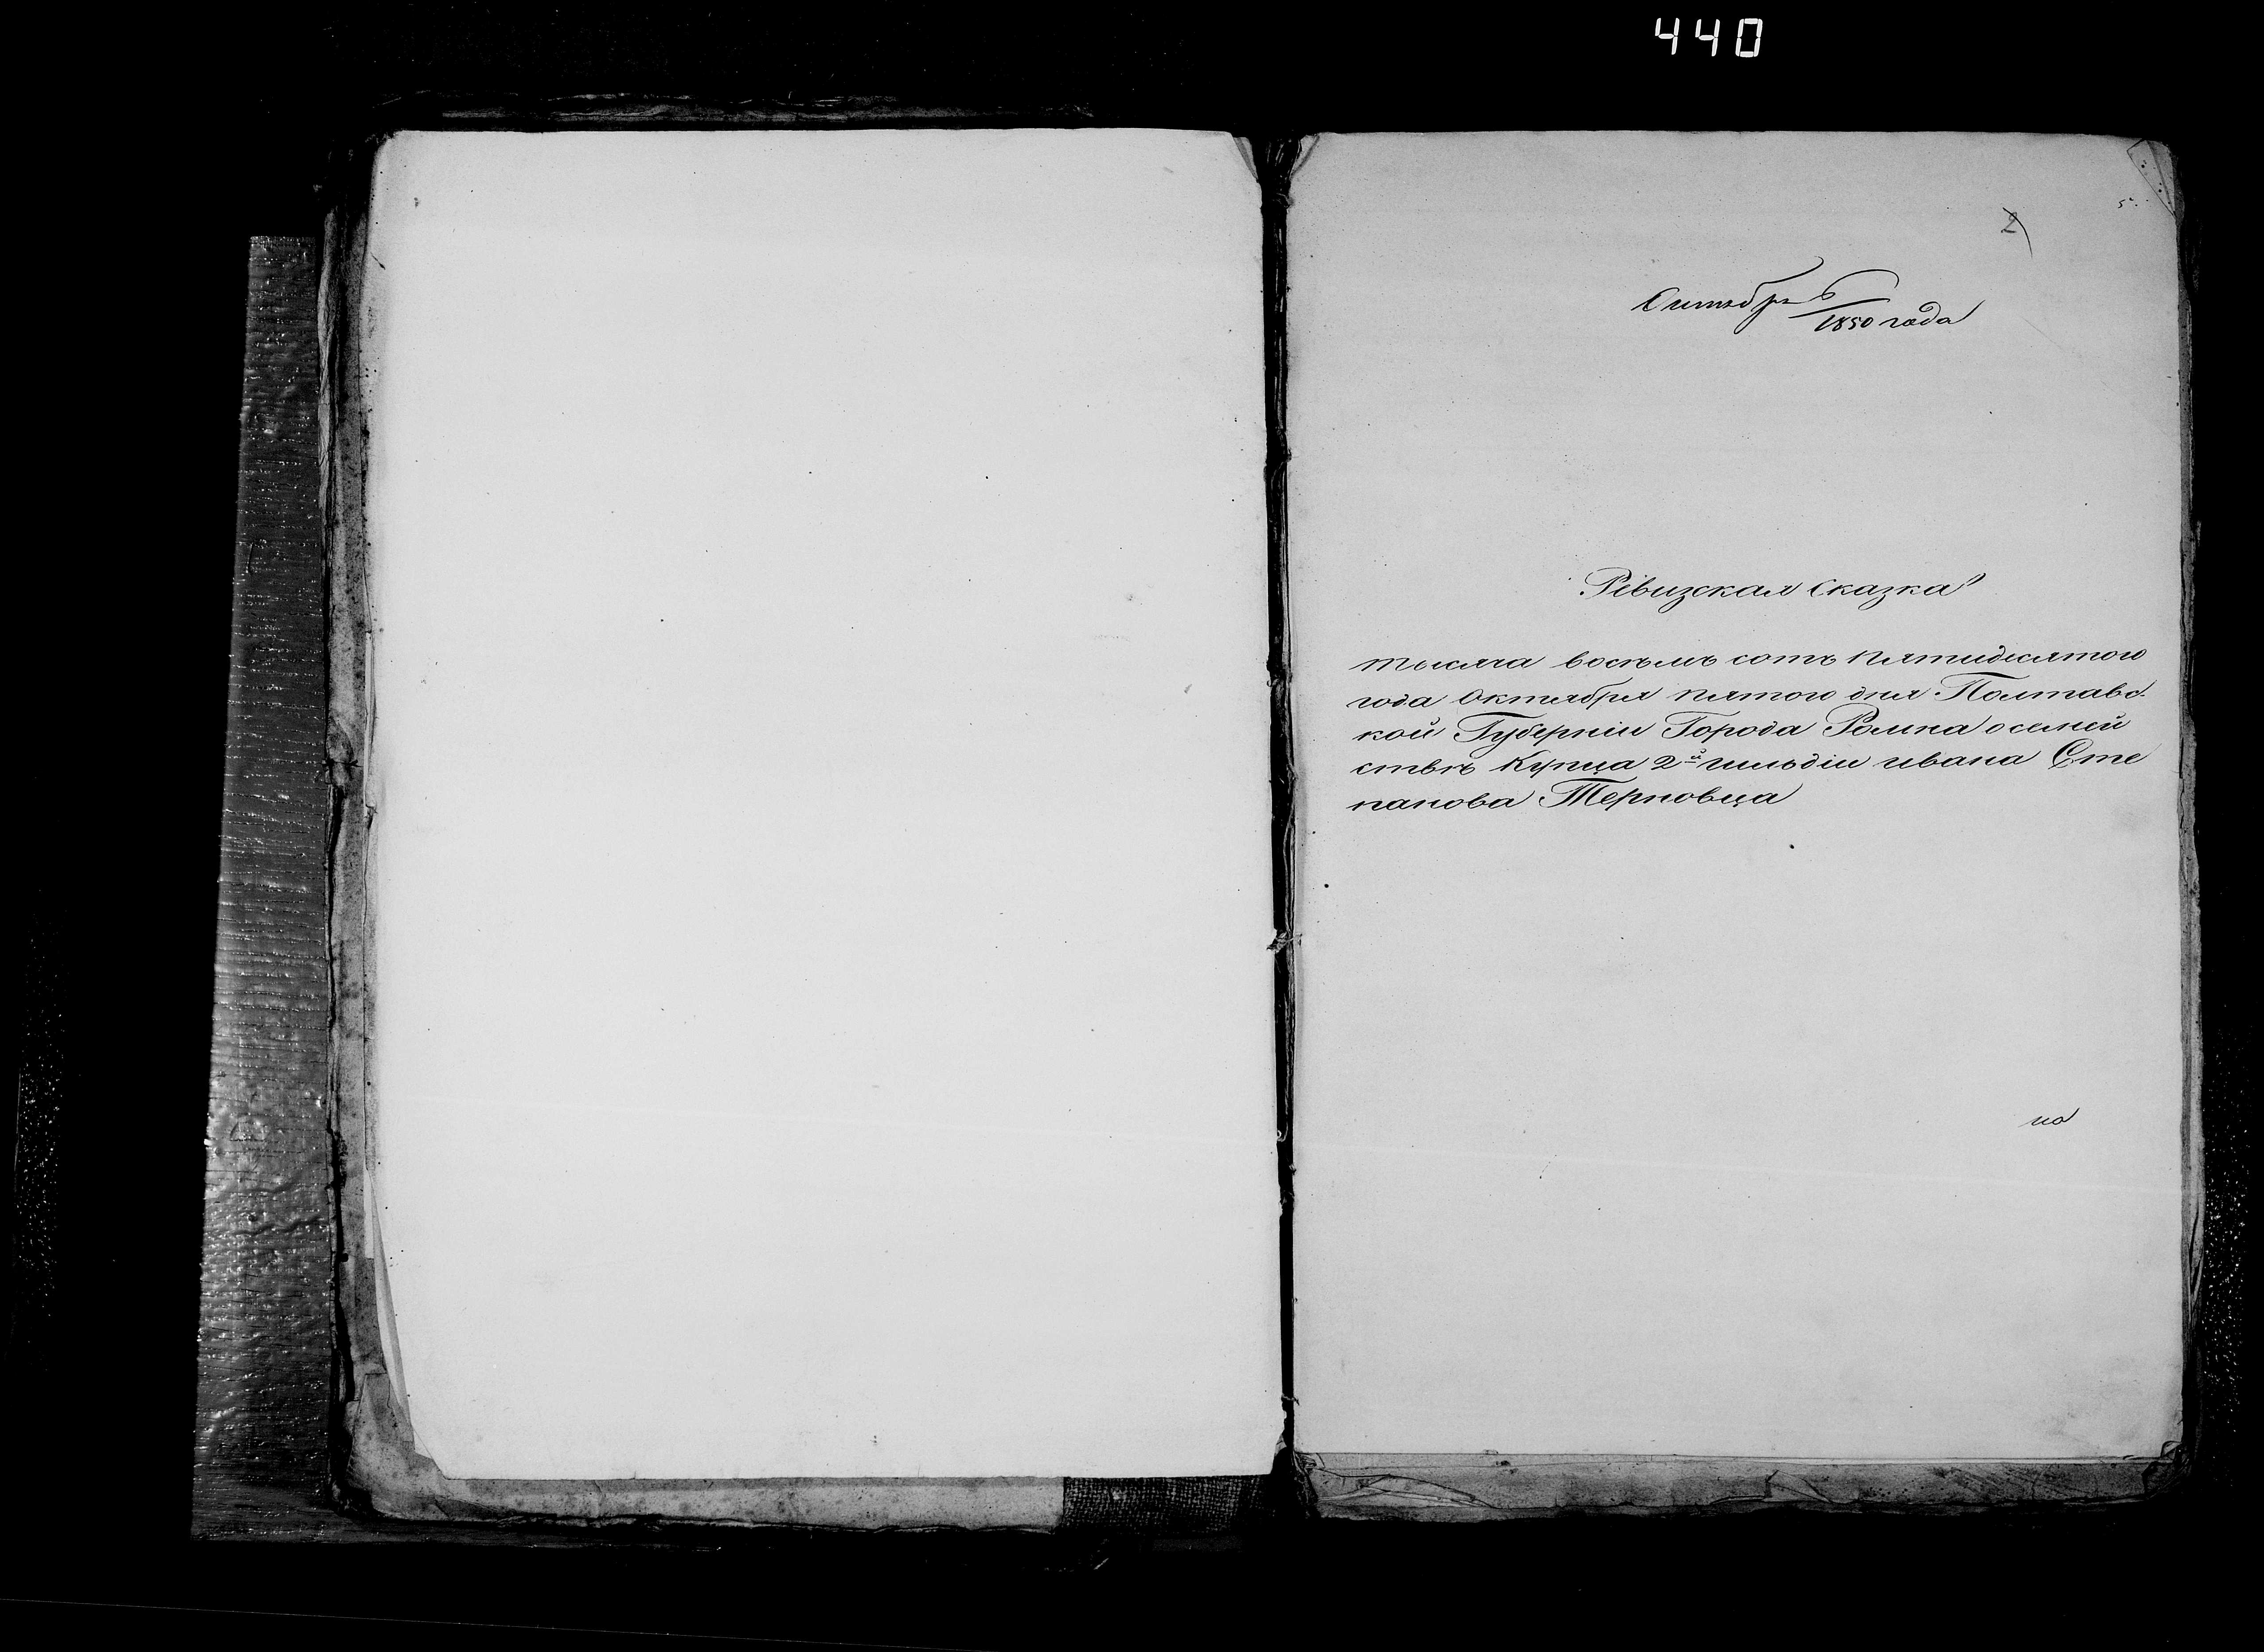 440
5.
2
Октября 6
1850 года
Ревизская Сказка
тысяча восемь сотъ пятидесятого
года Октября пятого дня Полтавс-
кой Губерніи Города Ромна о семей
ствѣ Купца 2й гильдіи ивана Сте
панова Терновца